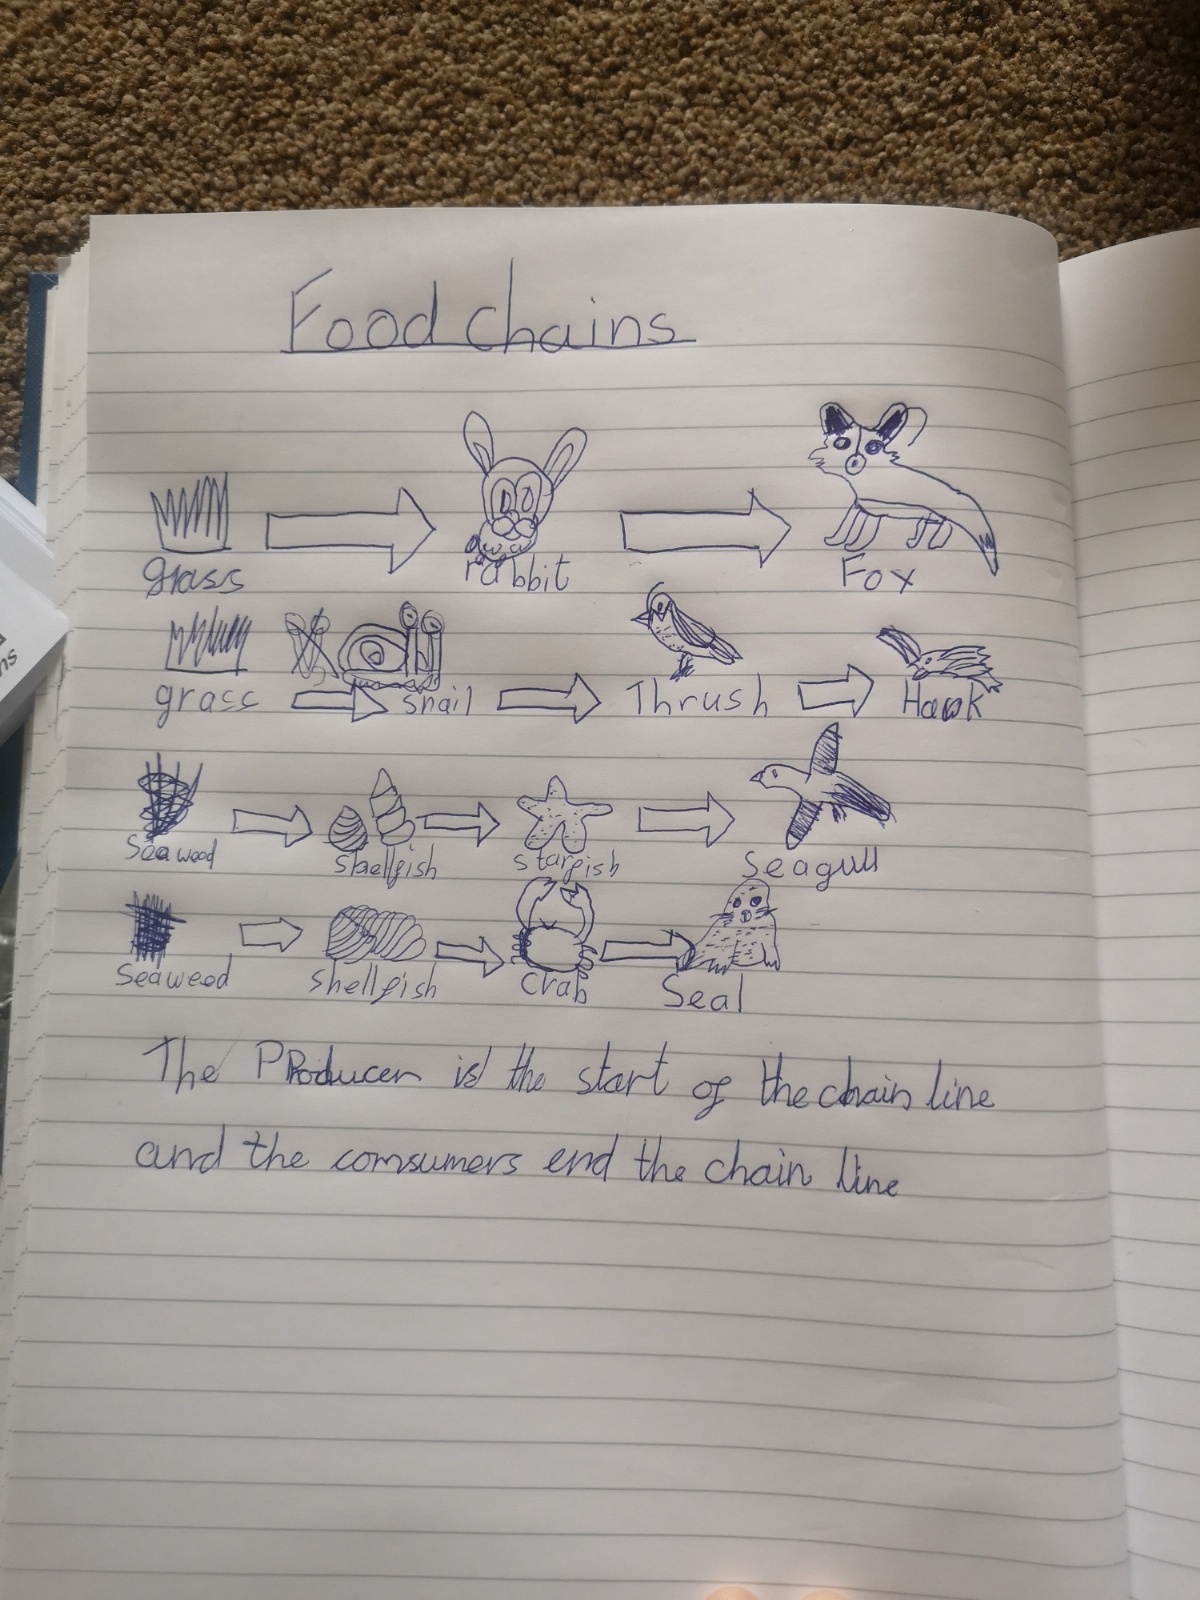 Food chains
grass rabbit Fox
grass snail Thrush Hawk
Seaweed shellfish starfish Seagull
Seaweed shellfish Crab Seal
The PRoducer is the start of the chain line
and the comsumers end the chain line